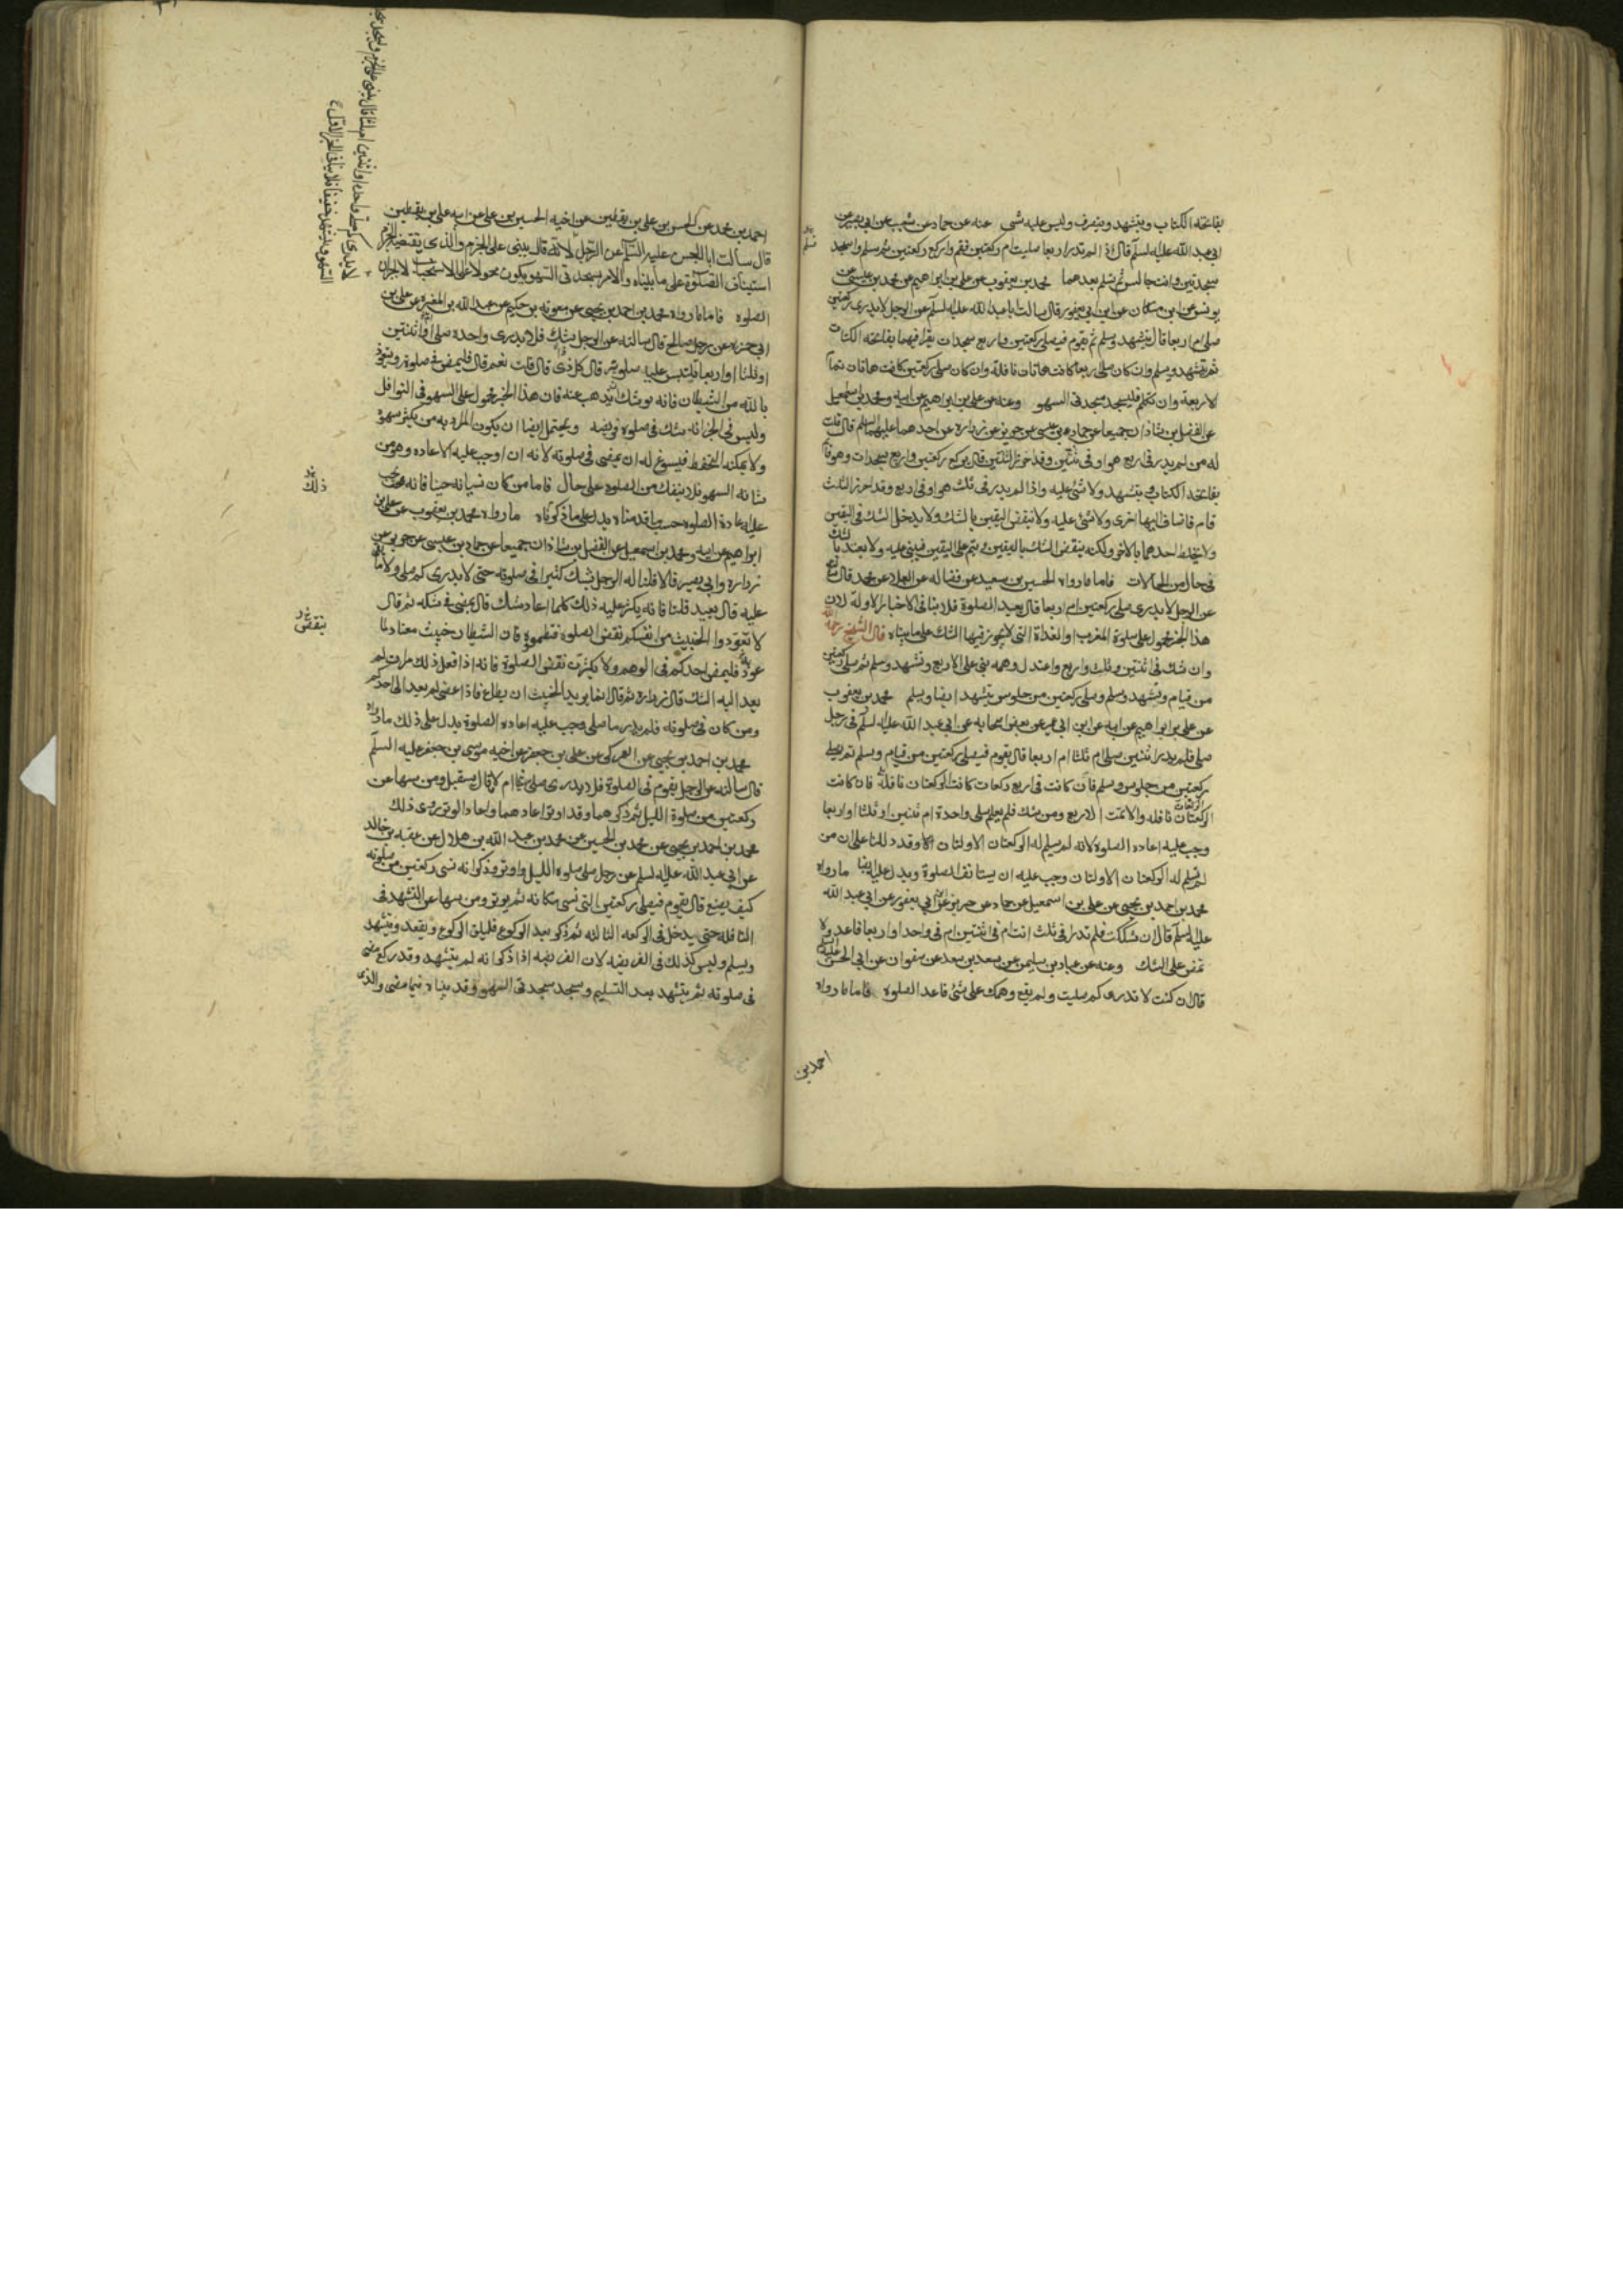 بفاتحة الكتاب ويتشهد وينصرف وليس عليه شئ عنه عن حماد عن شعيب عن ابي بصير عن
ابي عبد الله عليه السلم قال اذا لم تدر اربعا صليت ام ركعتين فقم واركع ركعتين ثم سلم واسجد
سجدتين وانت جالس ثم تسلم بعدهما محمد بن يعقوب عن علي بن ابراهيم عن محمد بن عيسى عن
يونس عن ابن مسكان عن ابن ابي يعفور قال سالت ابا عبد الله عليه السلم عن الرجل لا يدري ركعتين
صلى ام اربعا قال يتشهد ويسلم ثم يقوم فيصلي ركعتين واربع سجدات يقرأ فيهما بفاتحة الكتاب
ثم يتشهد ويسلم وان كان صلى اربعا كانت هاتان نافلة وان كان صلى ركعتين كانت هاتان تماما
لاربعة وان تكلم فليسجد سجدتي السهو وعنه عن علي بن ابراهيم عن ابيه ومحمد بن اسمعيل
عن الفضل بن شاذان جميعا عن حماد بن عيسى عن حريز عن زرارة عن احدهما عليهما السلم قال قلت
له من لم يدر في اربع هو او في ثنتين وقد احرز الثنتين قال يركع ركعتين واربع سجدات وهو قائم
بفاتحة الكتاب ويتشهد ولا شئ عليه واذا لم يدر في ثلث هو او في اربع وقد احرز الثلث
قام فاضاف اليها اخرى ولا شئ عليه ولا ينقض اليقين بالشك ولا يدخل الشك في اليقين
ولا يخلط احدهما بالاخر ولكنه ينقض الشك باليقين ويتم على اليقين فيبني عليه ولا يعتد بالشك
في حال من الحالات فاما ما رواه الحسين بن سعيد عن فضاله عن العلا عن محمد قال سألته
عن الرجل لا يدري صلى ركعتين ام اربعا قال يعيد الصلوة فلا ينافي الاخبار الاولة لان
هذا الخبر محمول على صلوة المغرب او الغداة التي لا يجوز فيها الشك على ما بيناه قال الشيخ رحمه الله
وان شك في اثنتين وثلث واربع واعتدل وهمه بنى على الاربع وتشهد وسلم ثم صلى ركعتين
من قيام وتشهد وسلم وصلى ركعتين من جلوس يتشهد ايضا ويسلم محمد بن يعقوب
عن علي بن ابراهيم عن ابيه عن ابن ابي عمير عن بعض اصحابه عن ابي عبد الله عليه السلم في رجل
صلى فلم يدر اثنتين صلى ام ثلثا ام اربعا قال يقوم فيصلي ركعتين من قيام ويسلم ثم يصلي
ركعتين من جلوس ويسلم فان كانت في اربع ركعات كانت الركعتان نافلة فان كانت
الركعتان نافله والا تمت الاربع ومن شك فلم يعلم صلى واحدة ام ثنتين او ثلثا او اربعا
وجب عليه اعاده الصلوة لانه لم يسلم له الركعتان الاولتان وقد دللنا على ان من
لم تسلم له الركعتان الاولتان وجب عليه ان يستانف الصلوة ويدل عليه ايضا ما رواه
محمد بن احمد بن يحيى عن علي بن اسمعيل عن حماد عن حريز عن ابن ابي يعفور عن ابي عبد الله
عليه السلم قال ان شككت فلم تدر افي ثلث انت ام في اثنتين ام في واحد او اربعا فاعد ولا
تمض على الشك وعنه عن عباد بن سليمن عن سعد بن سعد عن صفوان عن ابي الحسن عليه السلم
قال ان كنت لا تدري كم صليت ولم يقع وهمك على شئ فاعد الصلوة فاما ما رواه
احمد بن
احمد بن محمد عن الحسن بن علي بن يقطين عن اخيه الحسين بن علي عن ابيه علي بن يقطين
قال سألت ابا الحسن عليه السلم عن الرجل لا قال يبني على الجزم والذي يقتضيه الجزم
استيناف الصلوة على ما بيناه والامر بسجدتي السهو يكون محمولا على الاستحباب لا لجبران
الصلوه فاما ما رواه محمد بن احمد بن يحيى عن معوية بن حكيم عن عبد الله بن المغيرة عن علي بن
ابي حمزه عن رجل صالح قال سالته عن الرجل يشك فلا يدري واحدة صلى او اثنتين
او ثلثا او اربعا تلتبس عليه صلوته قال كل ذي قال قلت نعم قال فليمض في صلوته ويتعوذ
بالله من الشيطان فانه يوشك ان يذهب عنه فان هذا الخبر محمول على السهو في النوافل
وليس في الخبر انه شك في صلوة فريضه ويحتمل ايضا ان يكون المراد به من يكثر سهوه
ولا يمكنه التحفظ فيسوغ له ان يمضي في صلوته لانه ان اوجب عليه الاعاده وهو من
شانه السهو فلا ينفك من الصلوه على حال فاما من كان نسيانه حينا فانه يجب
عليه اعادة الصلوه حسب ما قدمناه يدل على ما ذكرناه ما رواه محمد بن يعقوب عن علي بن
ابراهيم عن ابيه ومحمد بن اسمعيل عن الفضل بن شاذان جميعا عن حماد بن عيسى عن حريز عن
زراره وابي بصير قالا قلنا له الرجل يشك كثيرا في صلوته حتى لا يدري كم صلى ولا ما بقي
عليه قال يعيد قلنا فانه يكثر عليه ذلك كلما اعاد شك قال يمضي في شكه ثم قال
لا تعودوا الخبيث من انفسكم نقض الصلوه فتطمعوه فان الشيطان خبيث معتاد لما
عود فليمض احدكم في الوهم ولا يكثرن نقض الصلوة فانه اذا فعل ذلك مرات لم
يعد اليه الشك قال زراره ثم قال انما يريد الخبيث ان يطاع فاذا عصى لم يعد الى احدكم
ومن كان في صلوته فلم يدر ما صلى وجب عليه اعاده الصلوة يدل على ذلك ما رواه
محمد بن احمد بن يحيى عن العمركي عن علي بن جعفر عن اخيه موسى بن جعفر عليه السلم
قال سالته عن الرجل يقوم في الصلوة فلا يدري صلى شيئا ام لا قال يستقبل ومن سها عن
ركعتين من صلوة الليل ثم ذكرهما وقد اوتر اعادهما واعاد الوتر روى ذلك
محمد بن احمد بن يحيى عن محمد بن الحسين عن محمد بن عبد الله بن هلال عن عقبه بن خالد
عن ابي عبد الله عليه السلم عن رجل صلى صلوة الليل واوتر وذكر انه نسى ركعتين من صلوته
كيف يصنع قال يقوم فيصلي ركعتين التي نسى مكانه ثم يوتر ومن سها عن التشهد في
النافله حتى يدخل في الركعه الثالثه ثم ذكر بعد الركوع فليلق الركوع ويقعد ويتشهد
ويسلم وليس كذلك في الفريضه لان الفريضه اذا ذكر انه لم يتشهد وقد ركع مضى
في صلوته ثم يتشهد بعد التسليم ويسجد سجدتي السهو وقد بيناه فيما مضى والذي
ذلك
ينقض
لا يدري كم صلى واحده او اثنتين ام ثلثا قال يبني على الجزم ويسجد سجدتي
السهو ويتشهد تشهدا خفيفا فلا ينافي الخبر الاول